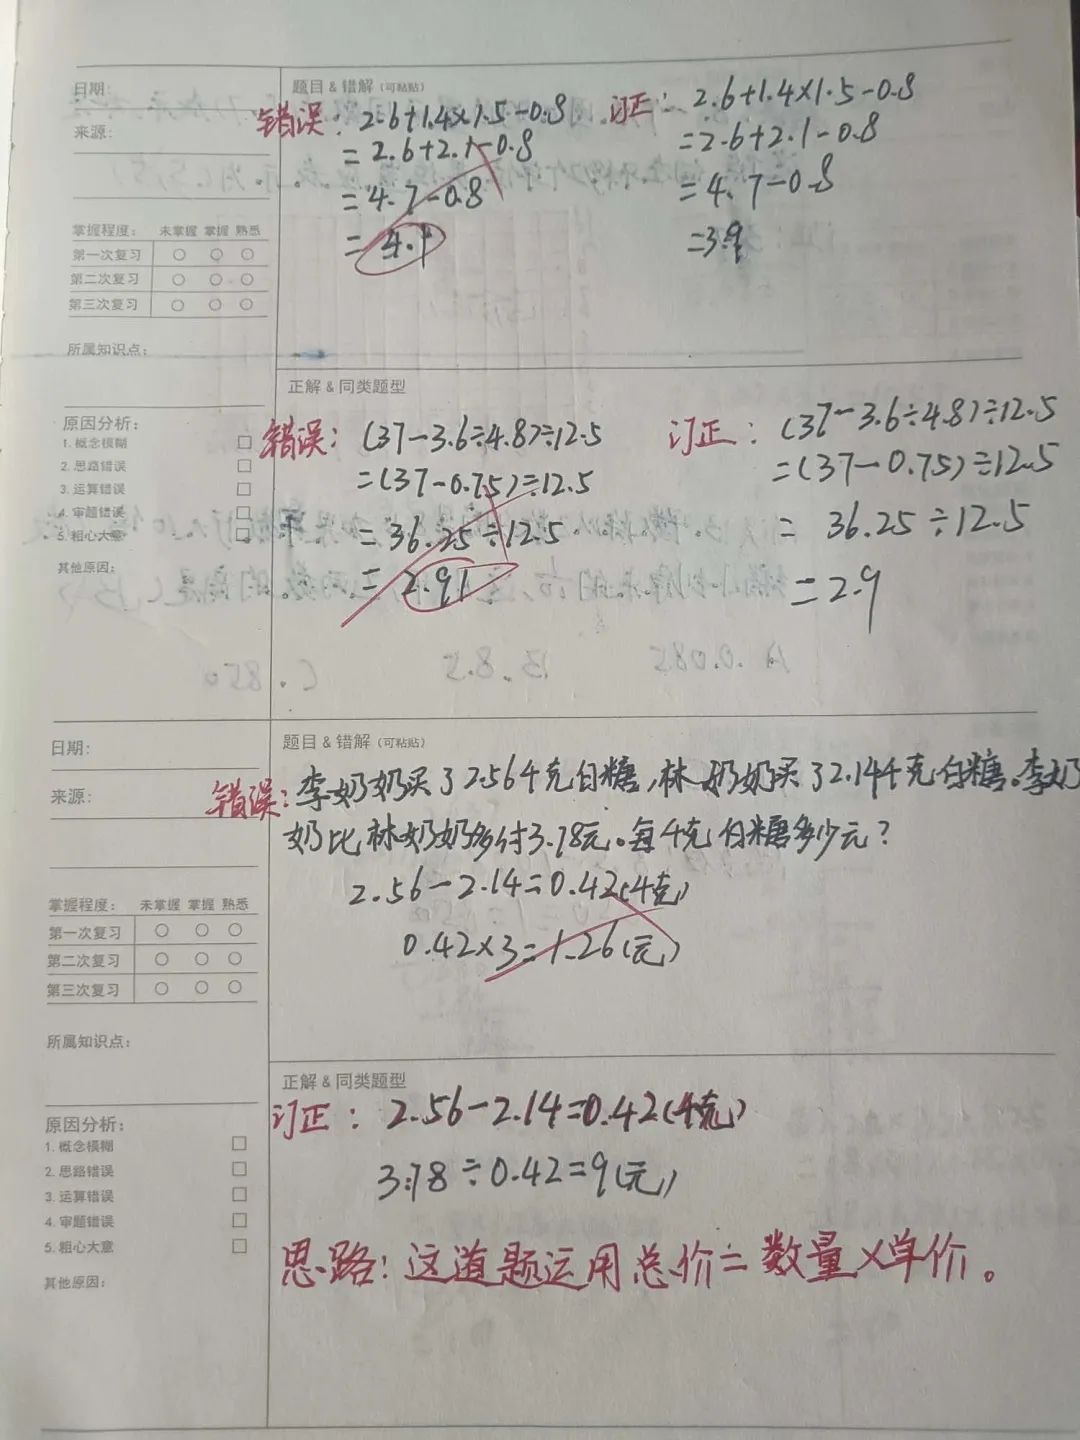 日期:
来源:
掌握程度: 未掌握 掌握 熟悉
第一次复习
第二次复习
第三次复习
所属知识点:
题目 & 错解 (可粘贴)
错误: 2.6+1.4×1.5-0.8
=2.6+2.1-0.8
=4.7-0.8
=4.1
订正: 2.6+1.4×1.5-0.8
=2.6+2.1-0.8
=4.7-0.8
=3.9
原因分析:
1. 概念模糊
2. 思路错误
3. 运算错误
4. 审题错误
5. 粗心大意
其他原因:
正解 & 同类题型
错误: (37-3.6÷4.8)÷12.5
=(37-0.75)÷12.5
=36.25÷12.5
=2.91
订正: (37-3.6÷4.8)÷12.5
=(37-0.75)÷12.5
=36.25÷12.5
=2.9
日期:
来源:
掌握程度: 未掌握 掌握 熟悉
第一次复习
第二次复习
第三次复习
所属知识点:
题目 & 错解 (可粘贴)
错误: 李奶奶买了2.56千克白糖,林奶奶买了2.14千克白糖。李奶
奶比林奶奶多付3.78元。每千克白糖多少元?
2.56-2.14=0.42(千克)
0.42×3=1.26(元)
原因分析:
1. 概念模糊
2. 思路错误
3. 运算错误
4. 审题错误
5. 粗心大意
其他原因:
正解 & 同类题型
订正: 2.56-2.14=0.42(千克)
3.78÷0.42=9(元)
思路:这道题运用总价=数量×单价。